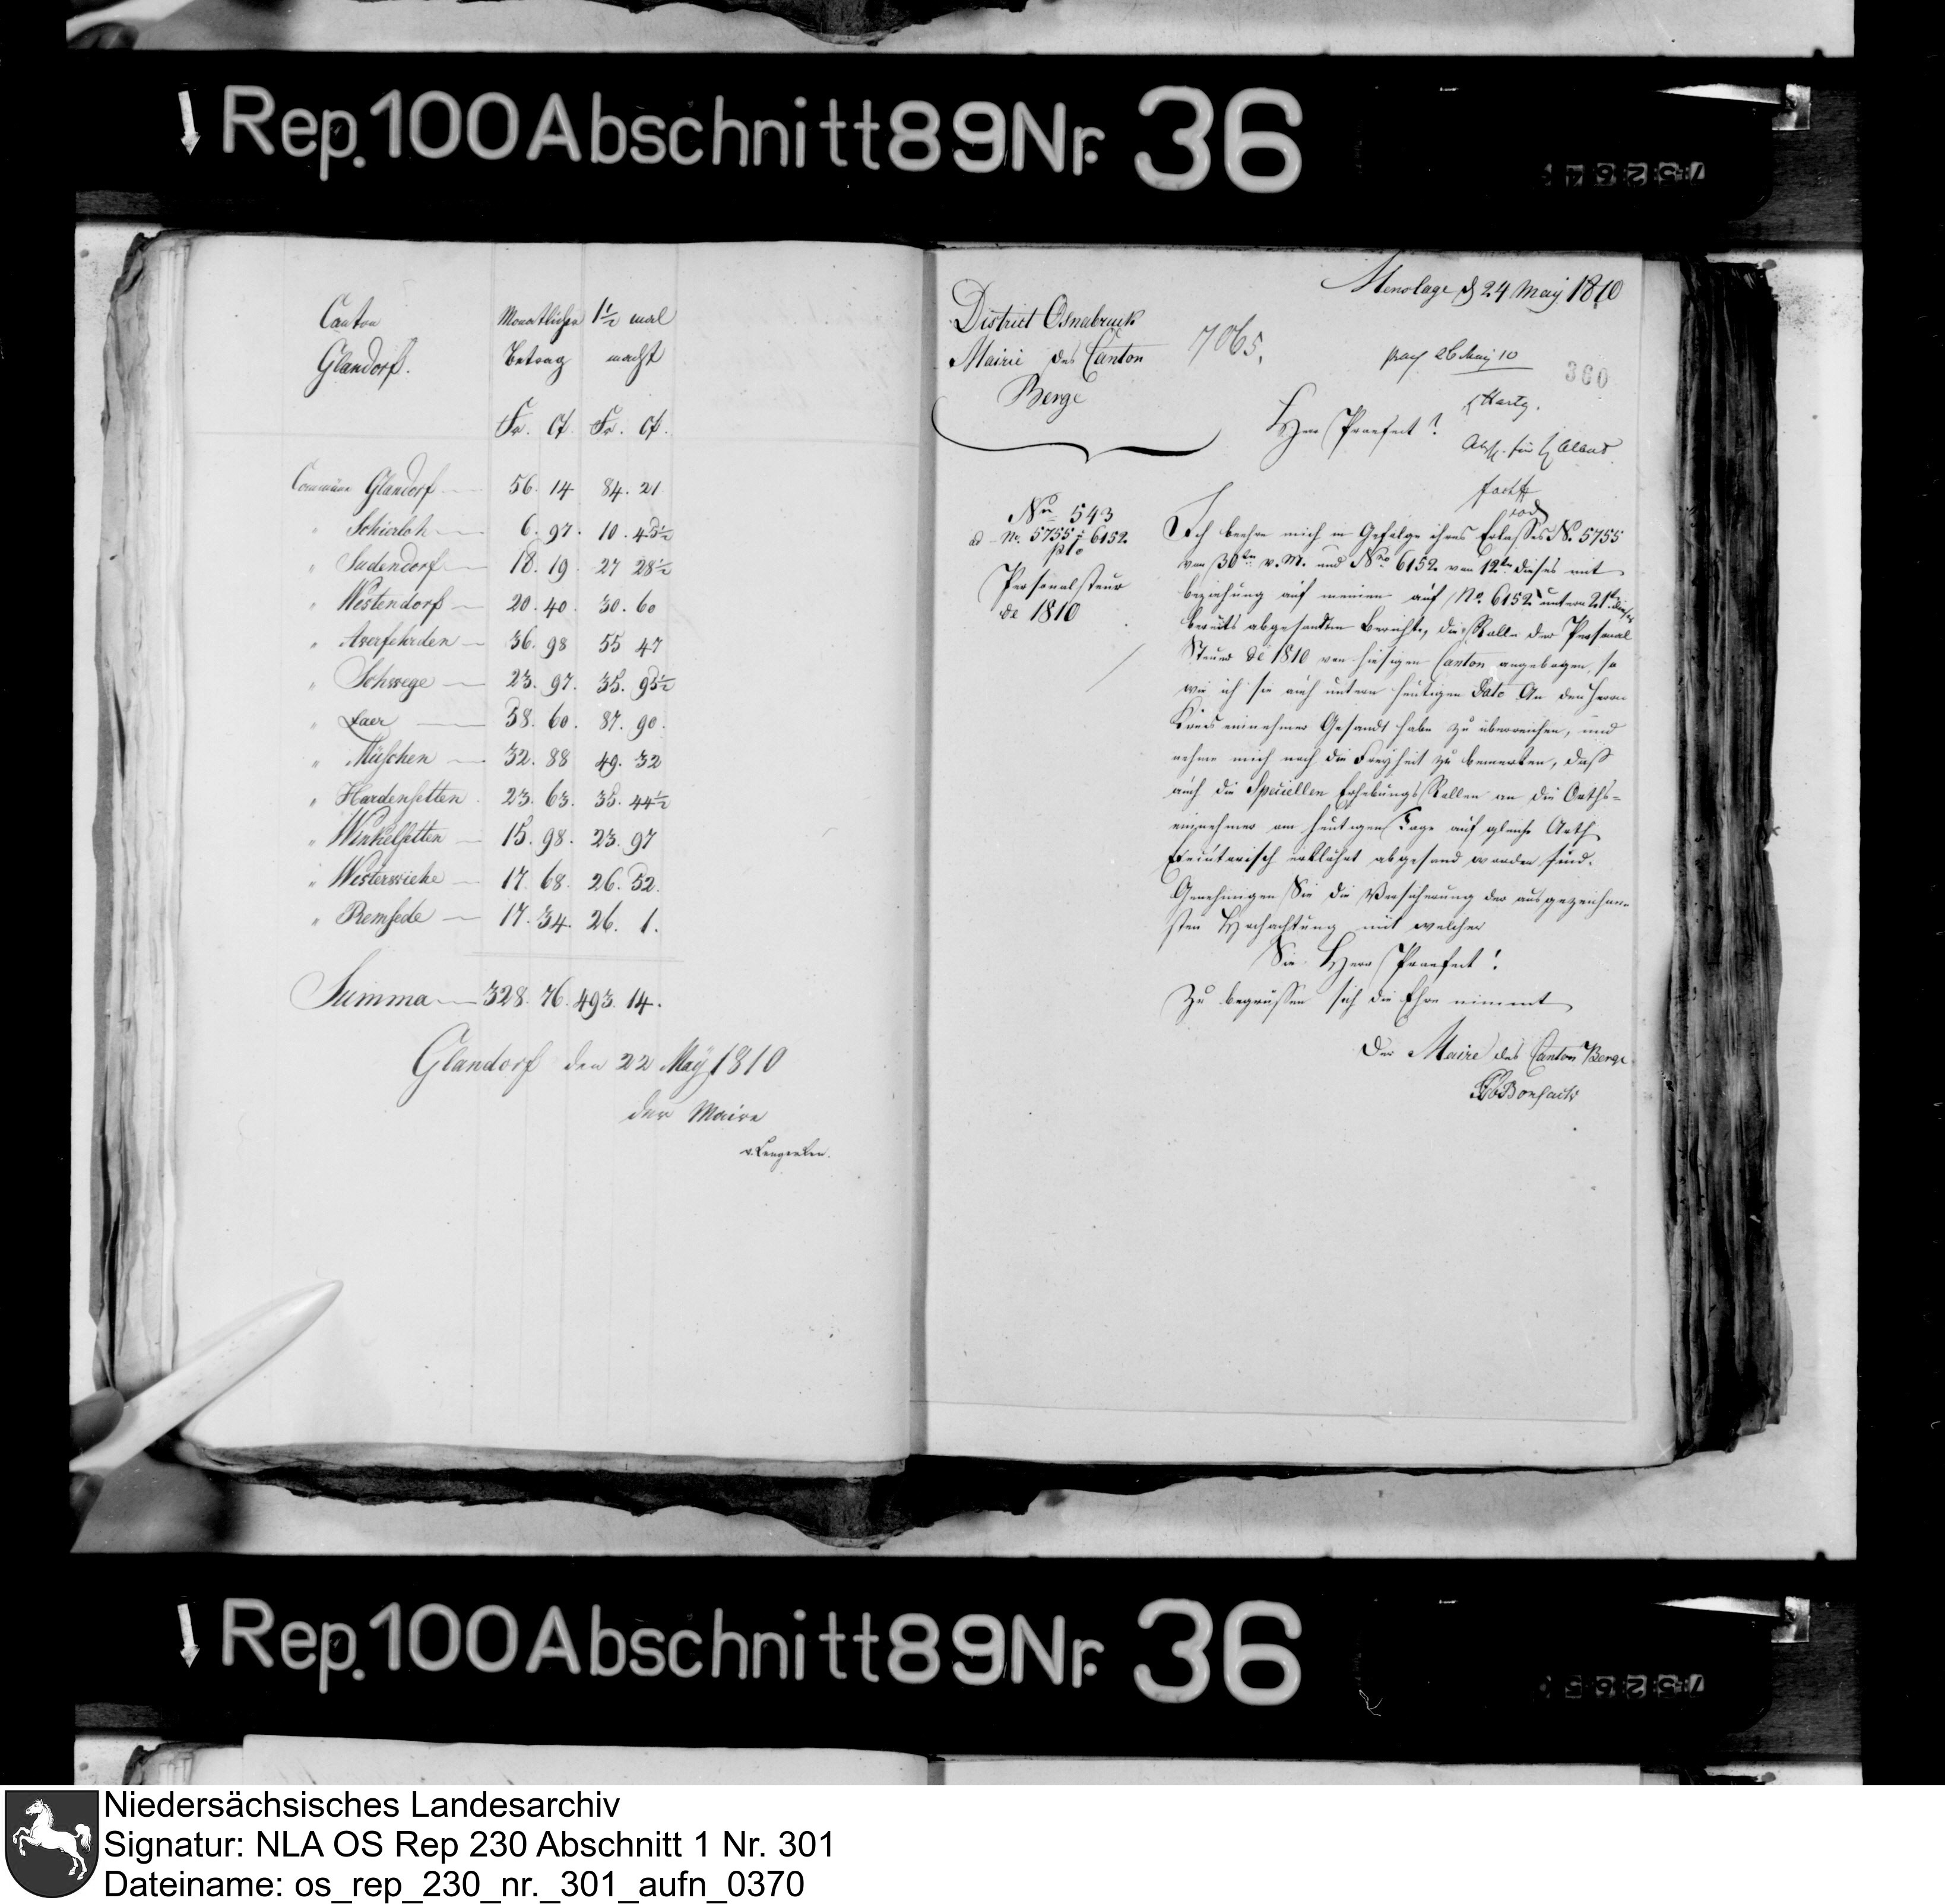 Rep. 100 Abschnitt 89 Nr. 36
Canton
Glandorf.
Monatlicher
Betrag
1½ mal
macht
Fr. Ct. Fr. Ct.
Commüne Glandorf — 56. 14 84. 21
" Schierloh — 6. 97. 10. 45½
" Sudendorf — 18. 19. 27 28½
" Westendorf — 20. 40. 30. 60
" Averfehrden — 36. 98 55 47
" Schwege — 23. 97. 35. 95½
" Laer — 58. 60. 87. 90.
" Müschen — 32. 88 49. 32
" Hardensetten. 23. 63. 35. 44½
" Winkelsetten — 15. 98. 23. 97
" Westerwiehe — 17. 68. 26. 52.
" Remsede — 17. 34. 26. 1.
Summa — 328. 76. 493. 14.
Glandorf den 22 May 1810
der Maire
v. Lengerken.
Menslage d 24 May 1810
District Osnabruck
Mairie des Canton
Berge
7065.
26 May 10
360
Herr Praefect!
No 543
ad No. 5755 & 6152
pto
Personalsteur
de 1810
Ich beehre mich in Gefolge ihres Erlasses No. 5755
von 30ten v. M. und No 6152 von 12ten dieses mit
beziehung auf meinen auf No. 6152 untern 21ten dieses
bereits abgesandten Berichte, die Rolle der Personal
Steuer de 1810 von hiesigen Canton angebogen, so
wie ich sie auch untern heutigen Dato An den Herrn
Kreiseinnehmer Gesandt habe zu überreichen, und
nehme mich noch die Freyheit zu bemerken, daß
auch die Speciellen Erhebungs Rollen an die Orths-
einnehmer am heutigen Tage auf gleiche Arth
Executorisch erklährt abgesand worden sind.
Genehmigen Sie die Versicherung der ausgezeichne-
sten Hochachtung mit welcher
Sie Herr Praefect!
Zu begrüssen sich die Ehre nimmt
Der Maire des Canton Berge
Rep. 100 Abschnitt 89 Nr. 36
Niedersächsisches Landesarchiv
Signatur: NLA OS Rep 230 Abschnitt 1 Nr. 301
Dateiname: os_rep_230_nr._301_aufn_0370